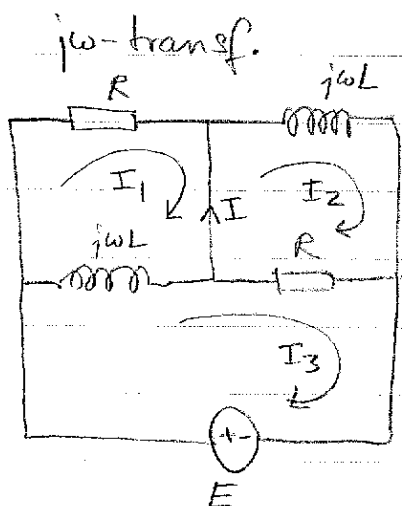 jω-transf.
R
jωL
I1
I
I2
jωL
R
I3
+-
E